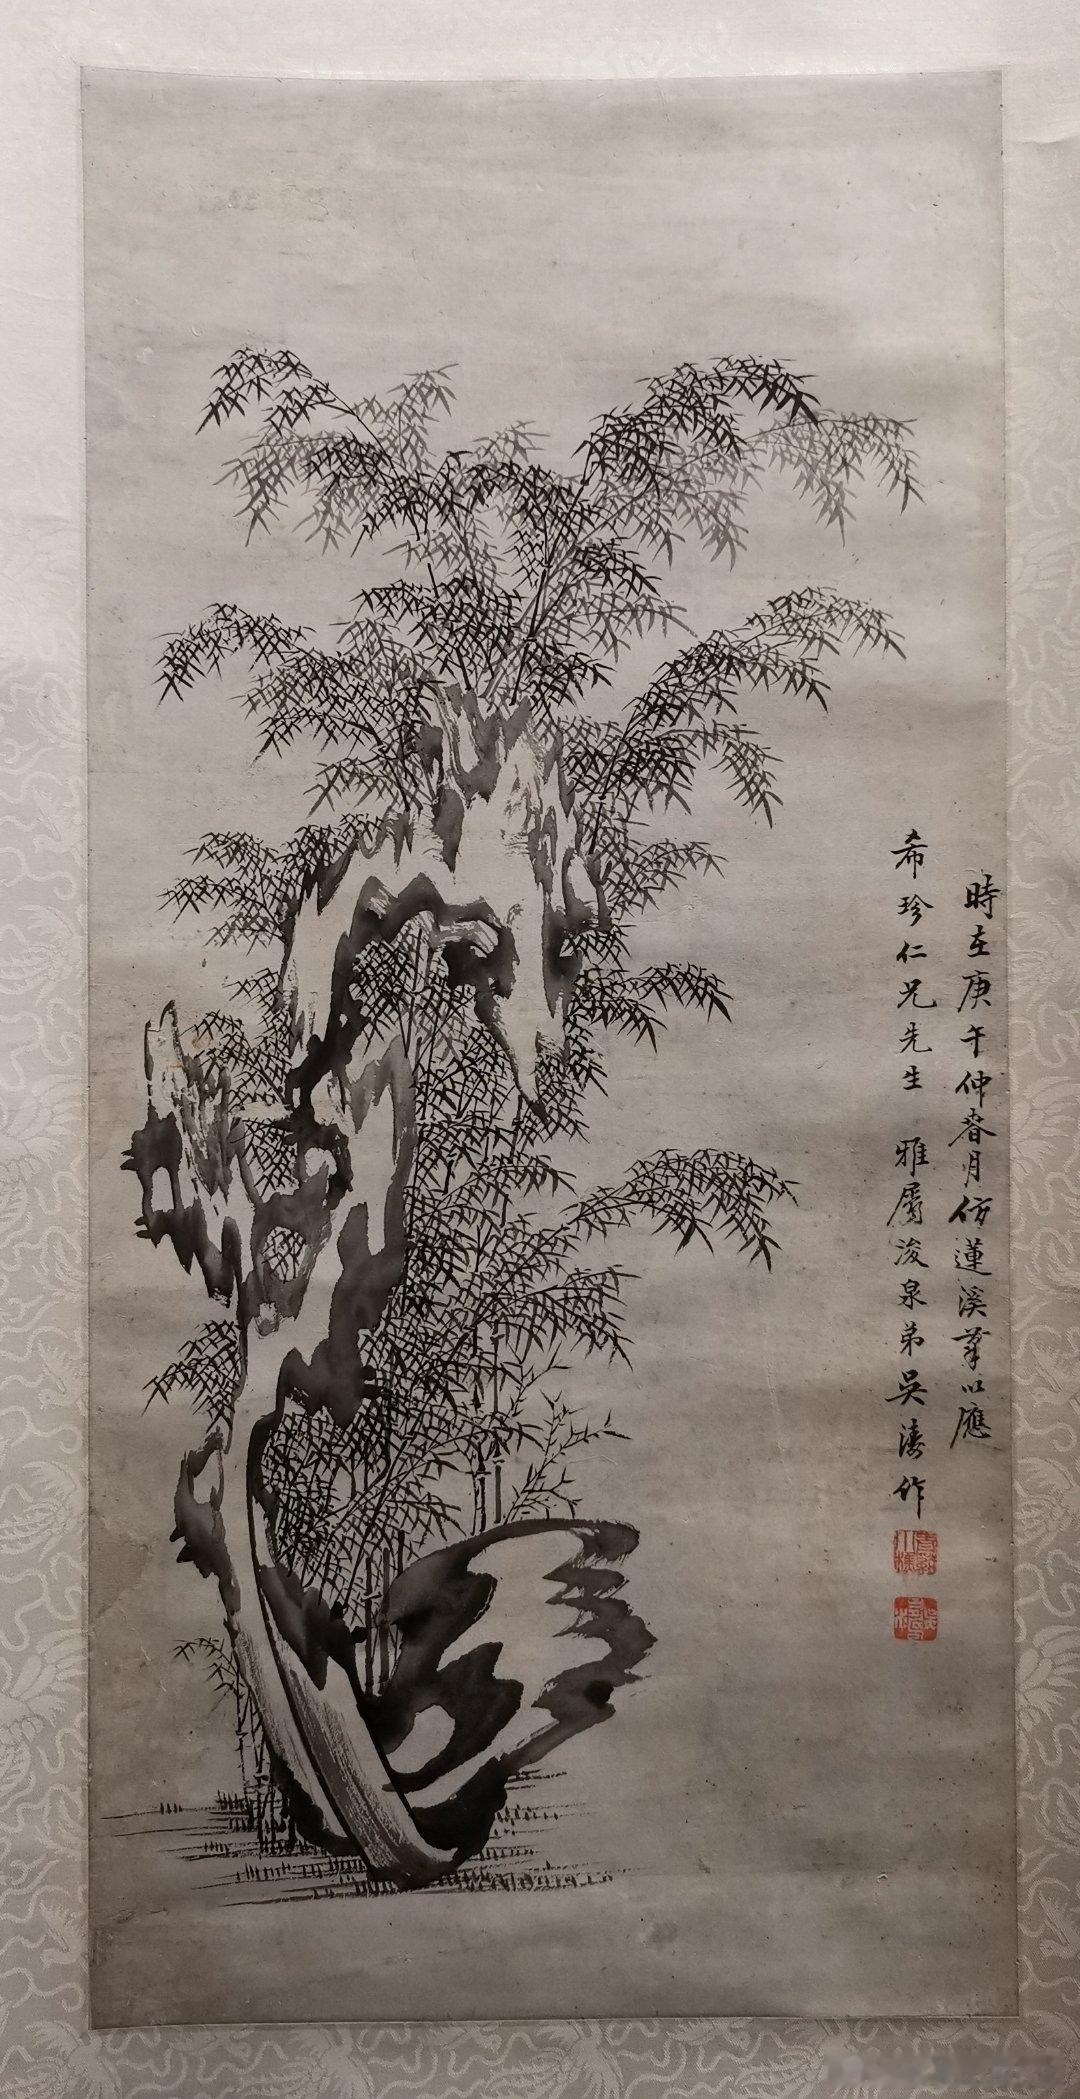 時在庚午仲春月仿蓮溪筆以應
希珍仁兄先生 雅屬浚泉弟吳濤作